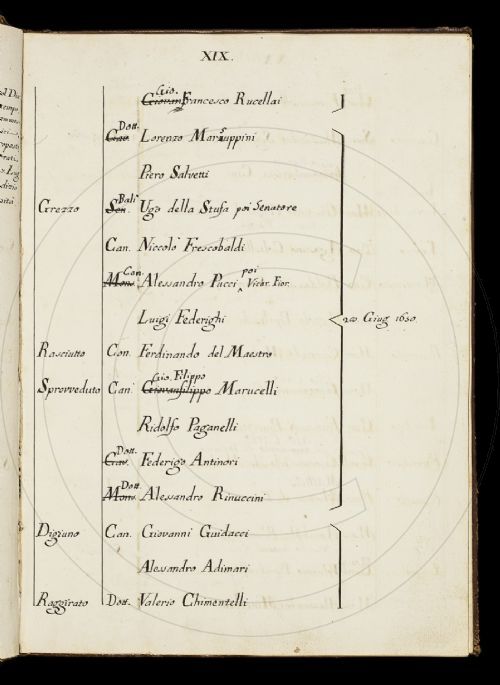 XIX.
Gio.
Giovan Francesco Rucellai
Dott.
Cav. Lorenzo Marsuppini
Piero Salvetti
Balì
Grezzo Sen. Ugo della Stufa poi Senatore
Can. Niccolò Frescobaldi
Con. poi
Mons. Alessandro Pucci Vicar. Fior.
Luigi Federighi 20. Giug. 1650.
Rasciutto Con. Ferdinando del Maestro
Gio. Filippo
Sprovveduto Can. Giovanfilippo Marucelli
Ridolfo Paganelli
Dott.
Cav. Federigo Antinori
Dott.
Mons. Alessandro Rinuccini
Digiuno Can. Giovanni Guidacci
Alessandro Adimari
Raggirato Dott. Valerio Chimentelli